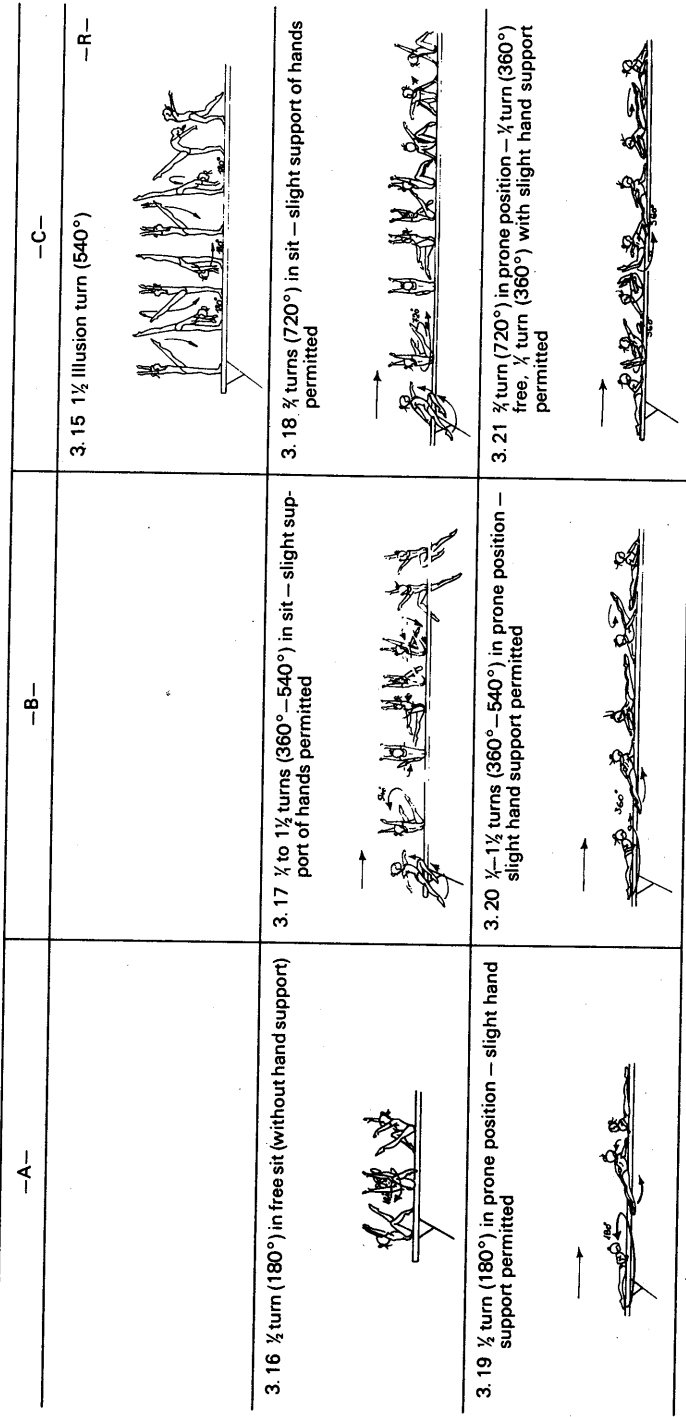 –A–
–B–
–C–
3.15 1½ Illusion turn (540°)
–R–
180°
180°
3.16 ½ turn (180°) in free sit (without hand support)
3.17 1/1 to 1½ turns (360°–540°) in sit – slight sup-
port of hands permitted
3.18 2/1 turns (720°) in sit – slight support of hands
permitted
720°
3.19 ½ turn (180°) in prone position – slight hand
support permitted
180°
3.20 1/1–1½ turns (360°–540°) in prone position –
slight hand support permitted
360°
3.21 2/1 turn (720°) in prone position – 1/1 turn (360°)
free, 1/1 turn (360°) with slight hand support
permitted
360°
360°